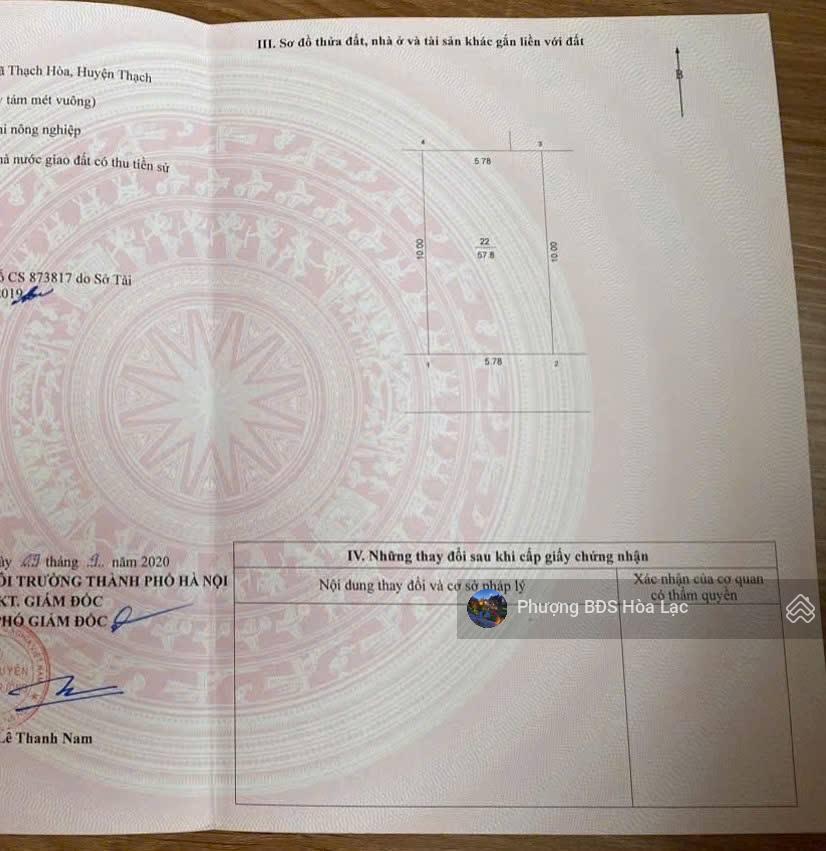 III. Sơ đồ thửa đất, nhà ở và tài sản khác gắn liền với đất
B
ã Thạch Hòa, Huyện Thạch
tám mét vuông)
ni nông nghiệp
nà nước giao đất có thu tiền sử
ố CS 873817 do Sở Tài
2019
4
3
5.78
10.00
22
57.8
10.00
1
5.78
2
ày 29 tháng 9. năm 2020
ÔI TRƯỜNG THÀNH PHỐ HÀ NỘI
KT. GIÁM ĐỐC
HÓ GIÁM ĐỐC
Lê Thanh Nam
IV. Những thay đổi sau khi cấp giấy chứng nhận
Nội dung thay đổi và cơ sở pháp lý
Xác nhận của cơ quan
có thẩm quyền
Phượng BĐS Hòa Lạc